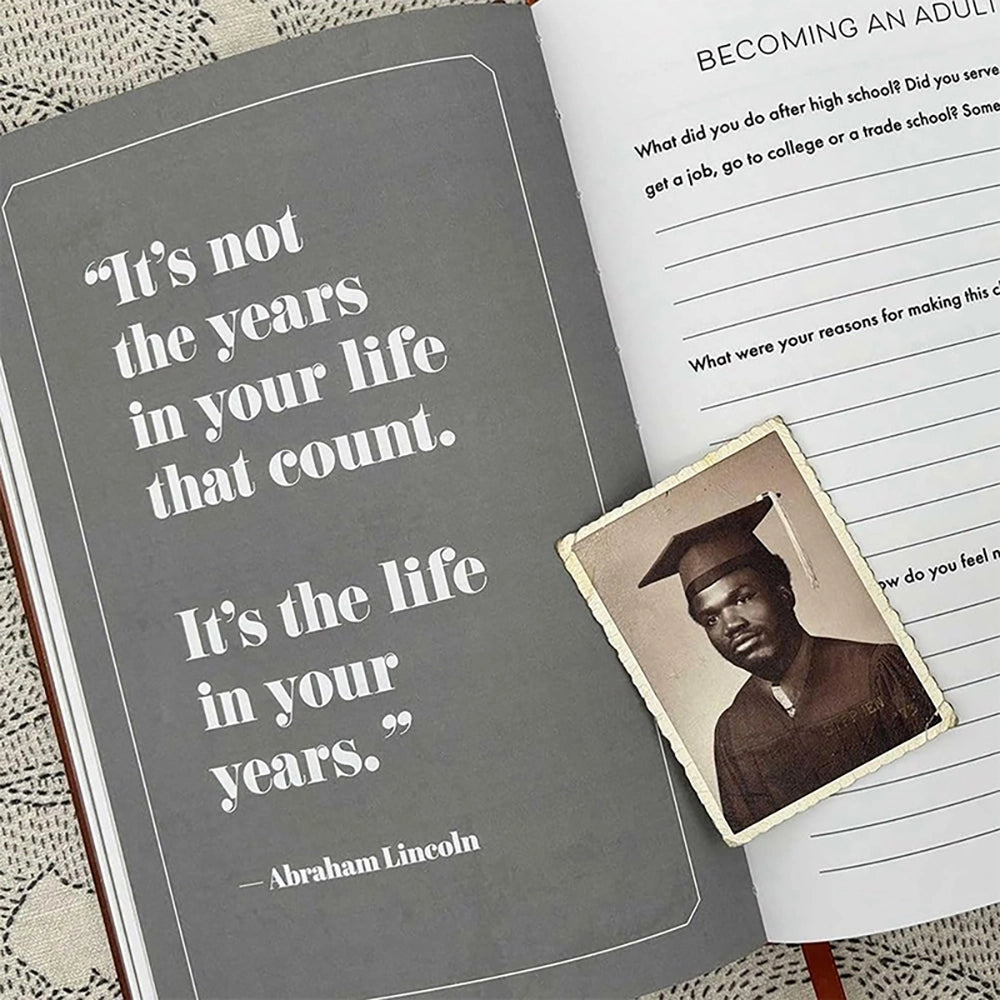 “It’s not
the years
in your life
that count.
It’s the life
in your
years.”
— Abraham Lincoln
BECOMING AN ADULT
What did you do after high school? Did you serve
get a job, go to college or a trade school? Some
What were your reasons for making this
ow do you feel
STEPHEN